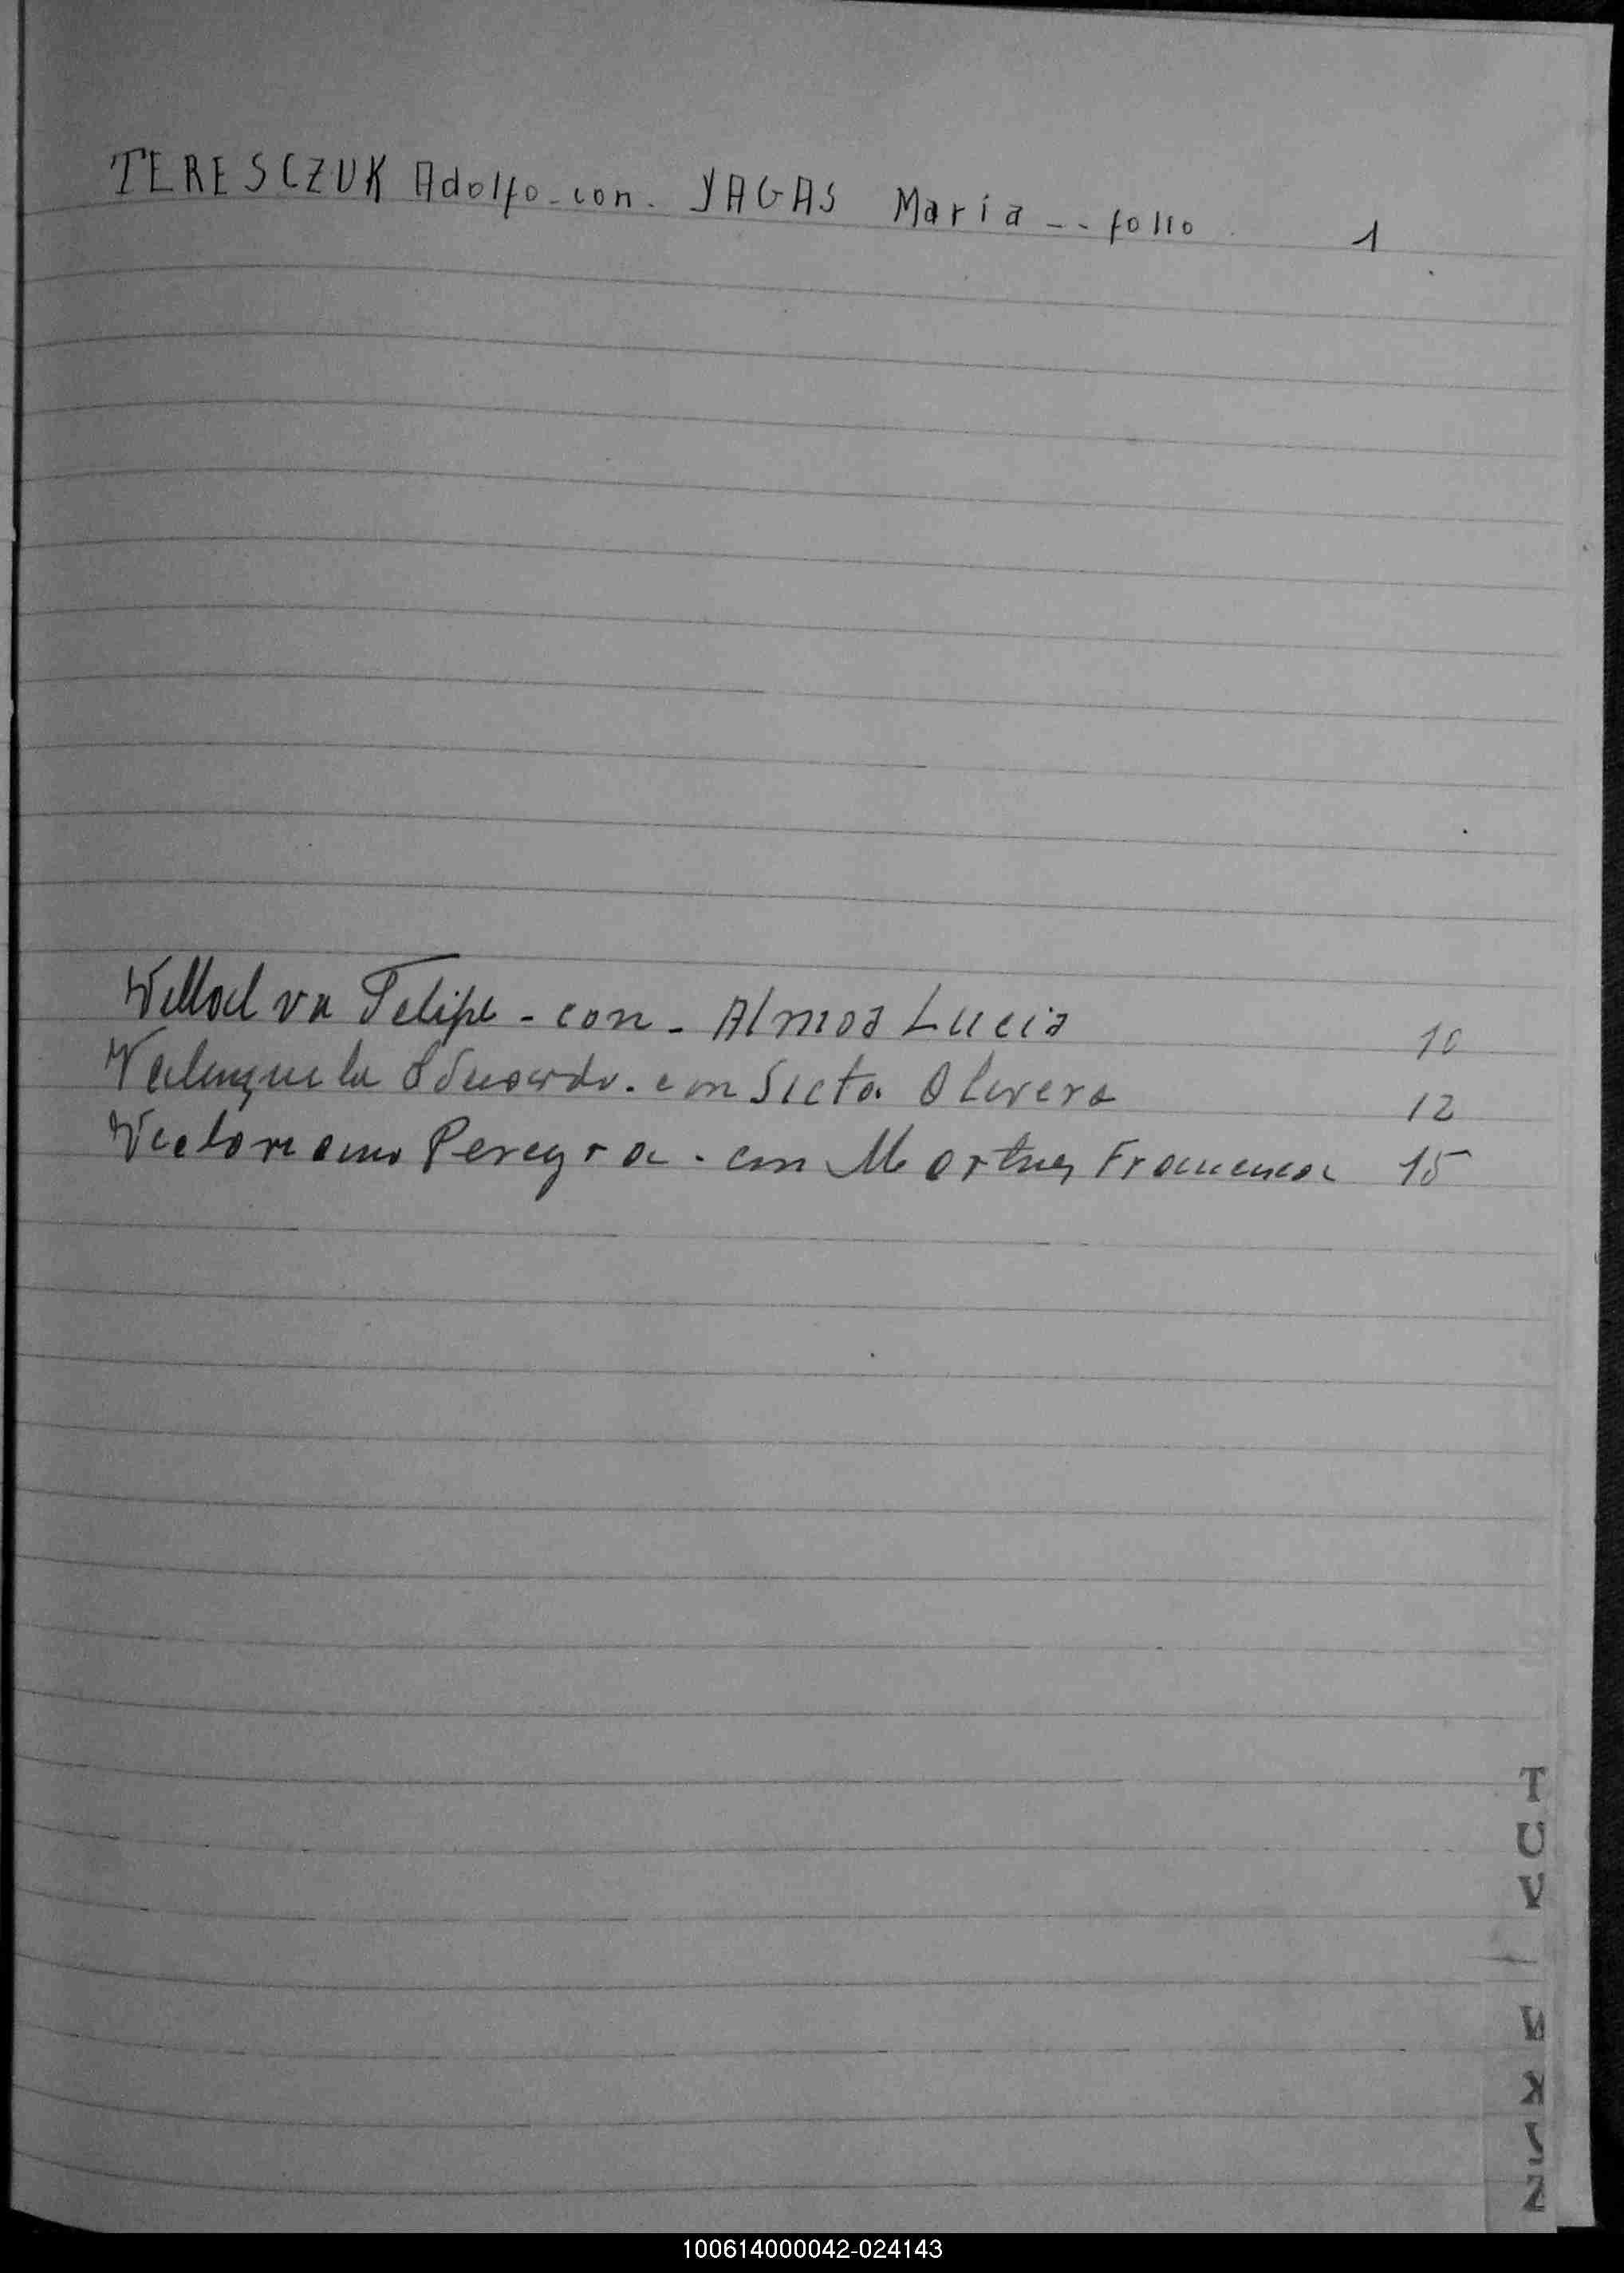 TERESCZUK Adolfo - con - YAGAS Maria -- folio 1
Villalva Felipe - con - Almoa Lucia 10
Valenzuela Eduardo. con Sicta Olivera 12
Victoriano Pereyra - con Martnez Francisca 15
T
U
V
Z
100614000042-024143